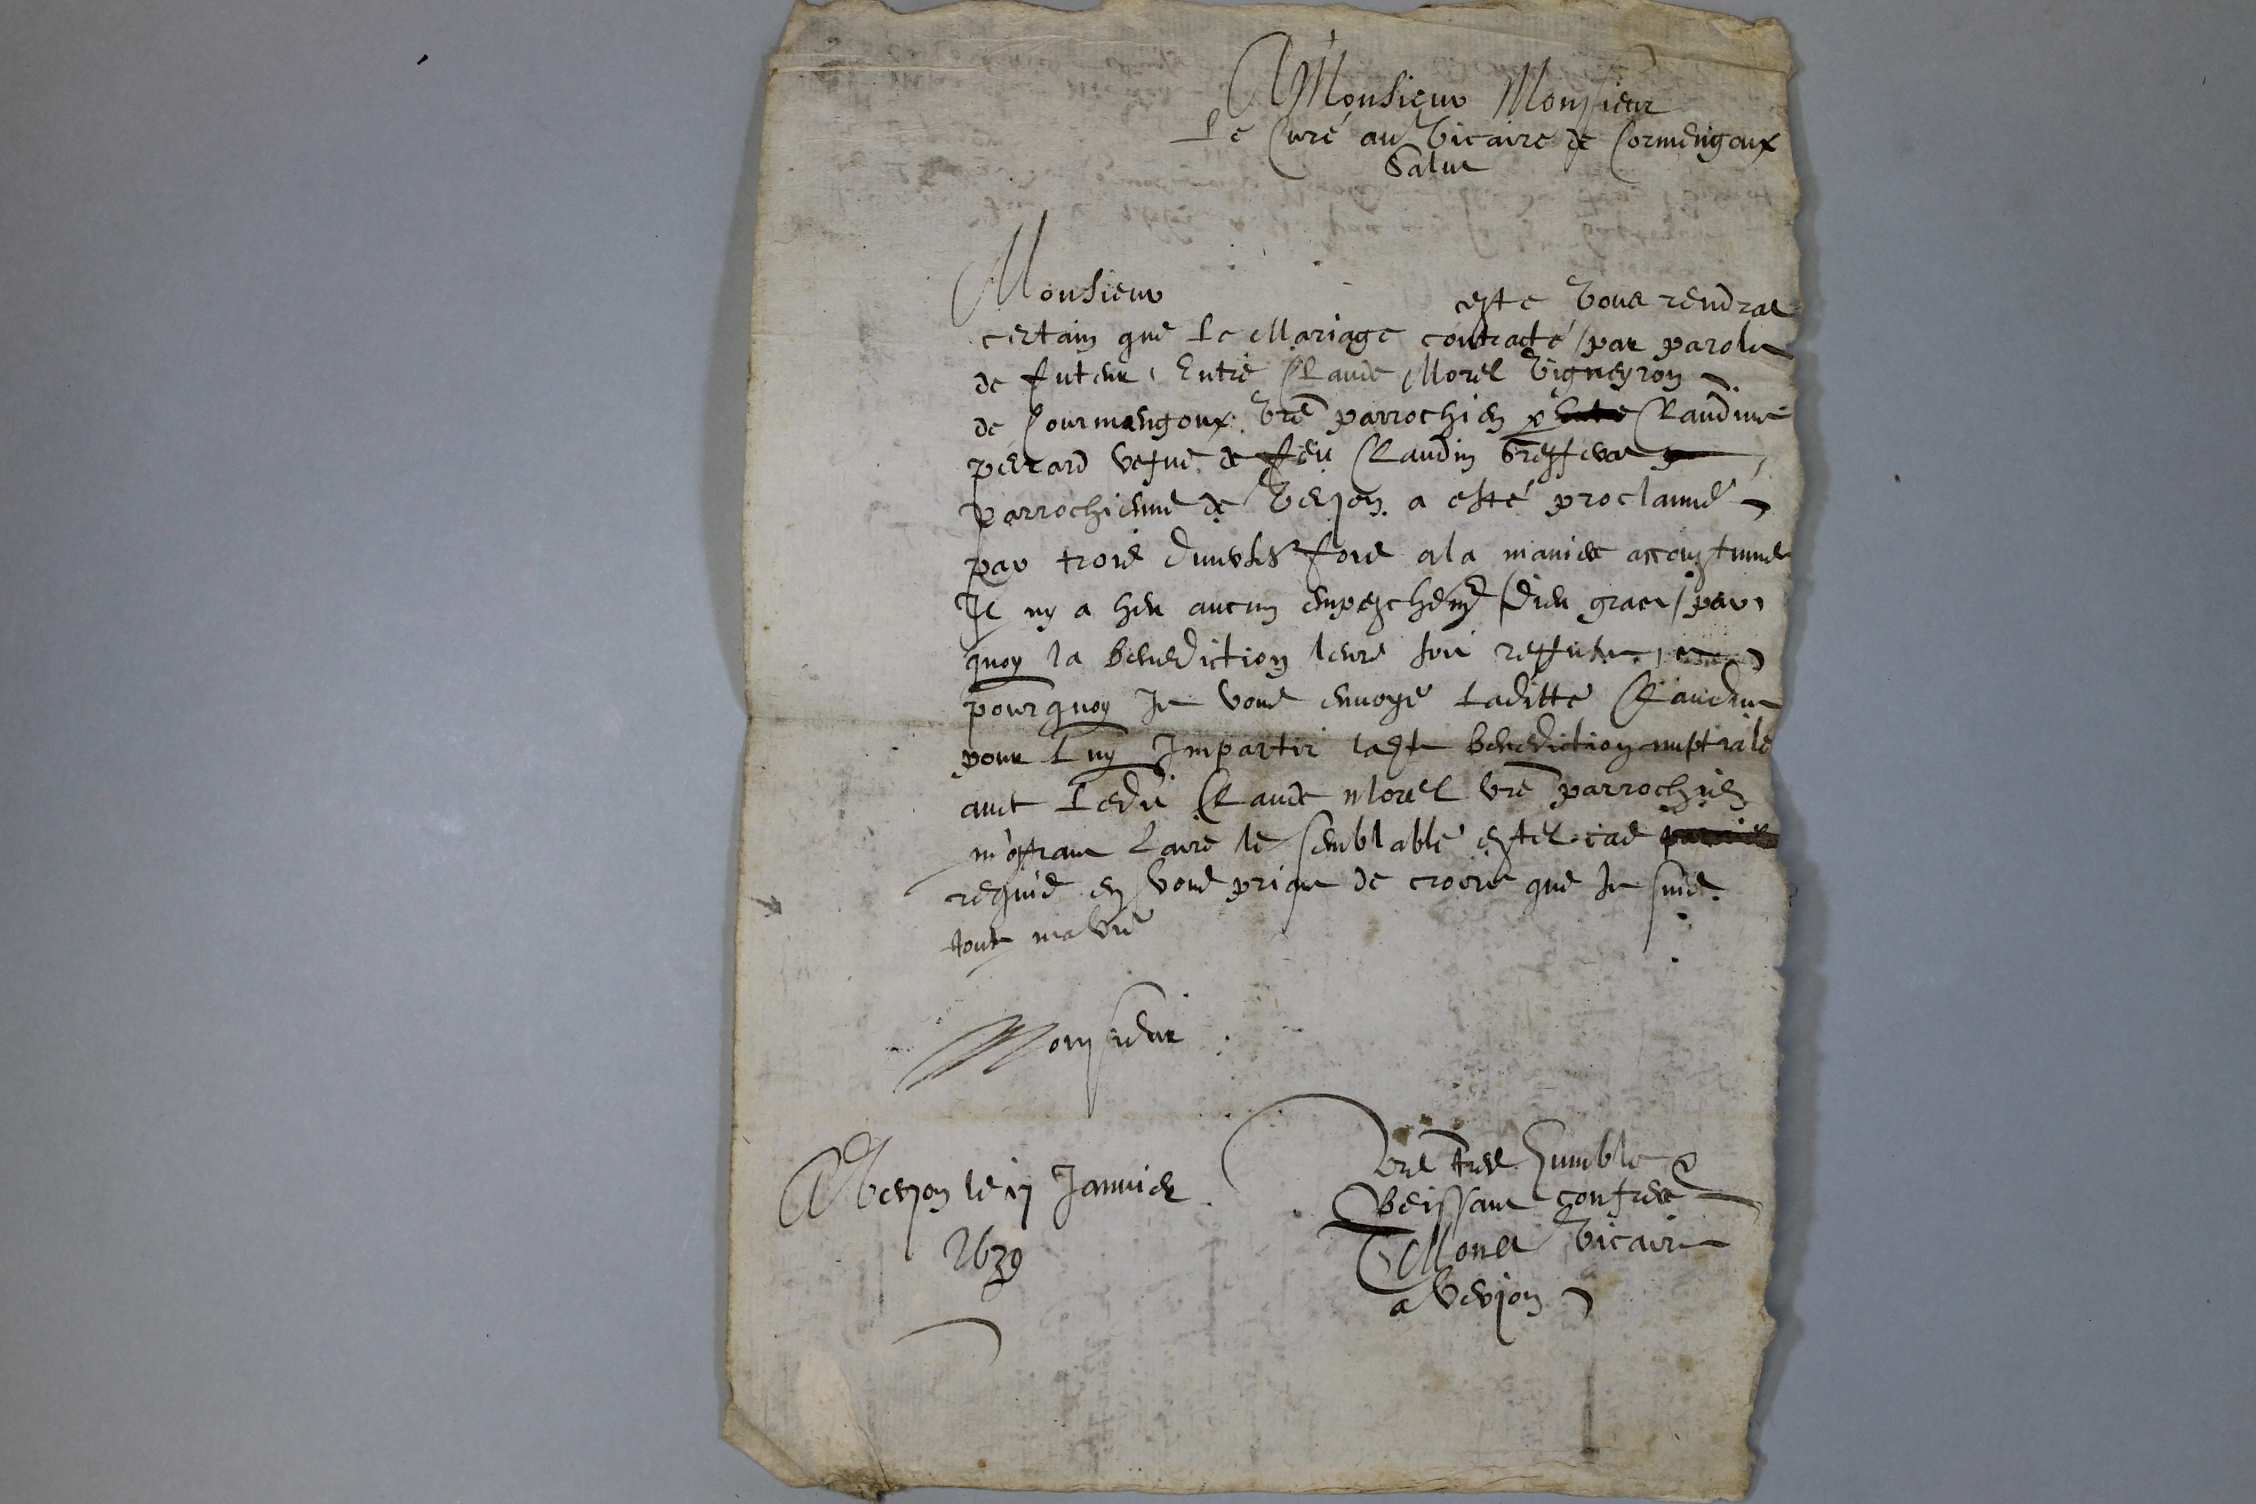 A Monsieur Monsieur
Le Curé au Vicaire de Cormengoux
Salut
Monsieur ceste vous rendrat
certain que le Mariage contracté par parolle
de futeur, Entre Claude Morel Vigneyron
de Courmangoux vre parrochien & Claudine
perrard vefue de feu Claudin
parrochienne de Verjon a esté proclamé
par trois diuerses fois a la maniere accoustumee
Il ny a heu aucun empeschemt Dieu grace par
quoy la benediction leurs soit
pourquoy Je vous enuoye laditte Claudine
pour Luy Impartir ladte benediction nuptiale
auec Ledit Claude Morel vre parrochien
m'offrant faire le semblable es tel cas
requis en vous priant de croire que Je suis
toute ma vie
Monsieur
A Verjon le 17 Januier
1639
Vre tres humble &
Obeissant confrere
Vicaire
a Verjon